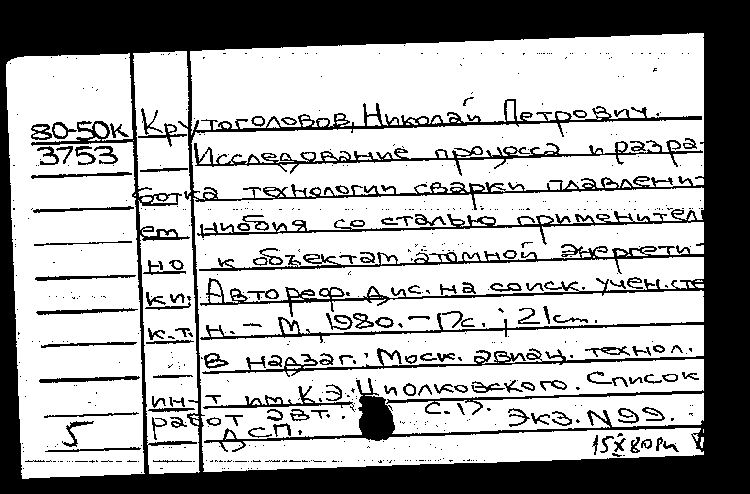 80-50к Крутоголовов, Николай Петрович.
3753 Исследование процесса и разра-
ботка технологии сварки плавлени-
ем ниобия со сталью применитель-
но к объектам атомной энергети-
ки: Автореф. дис. на соиск. учен. сте
к.т.н. - М., 1980. - 17с.; 21см.
В надзаг.: Моск. авиац. технол.
ин-т им. К.Э. Циолковского. Список
работ авт.: с. 17. Экз. N 99.
5 ДСП.